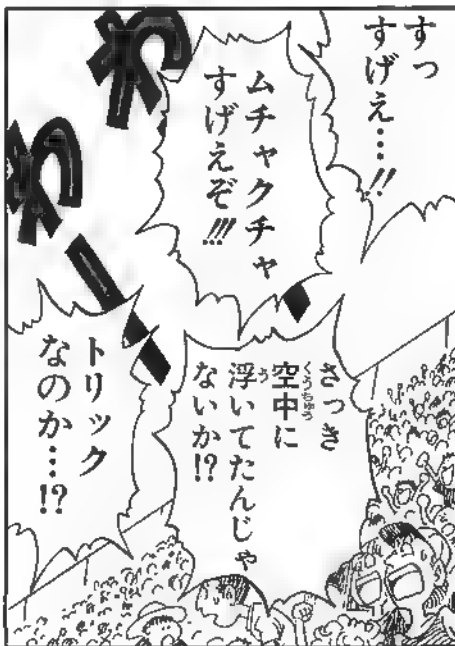 すっ
すげえ…!!
ムチャクチャ
すげえぞ!!!
わ
わー
さっき
空中に
くうちゅう
浮いてたんじゃ
う
ないか!?
トリック
なのか…!?